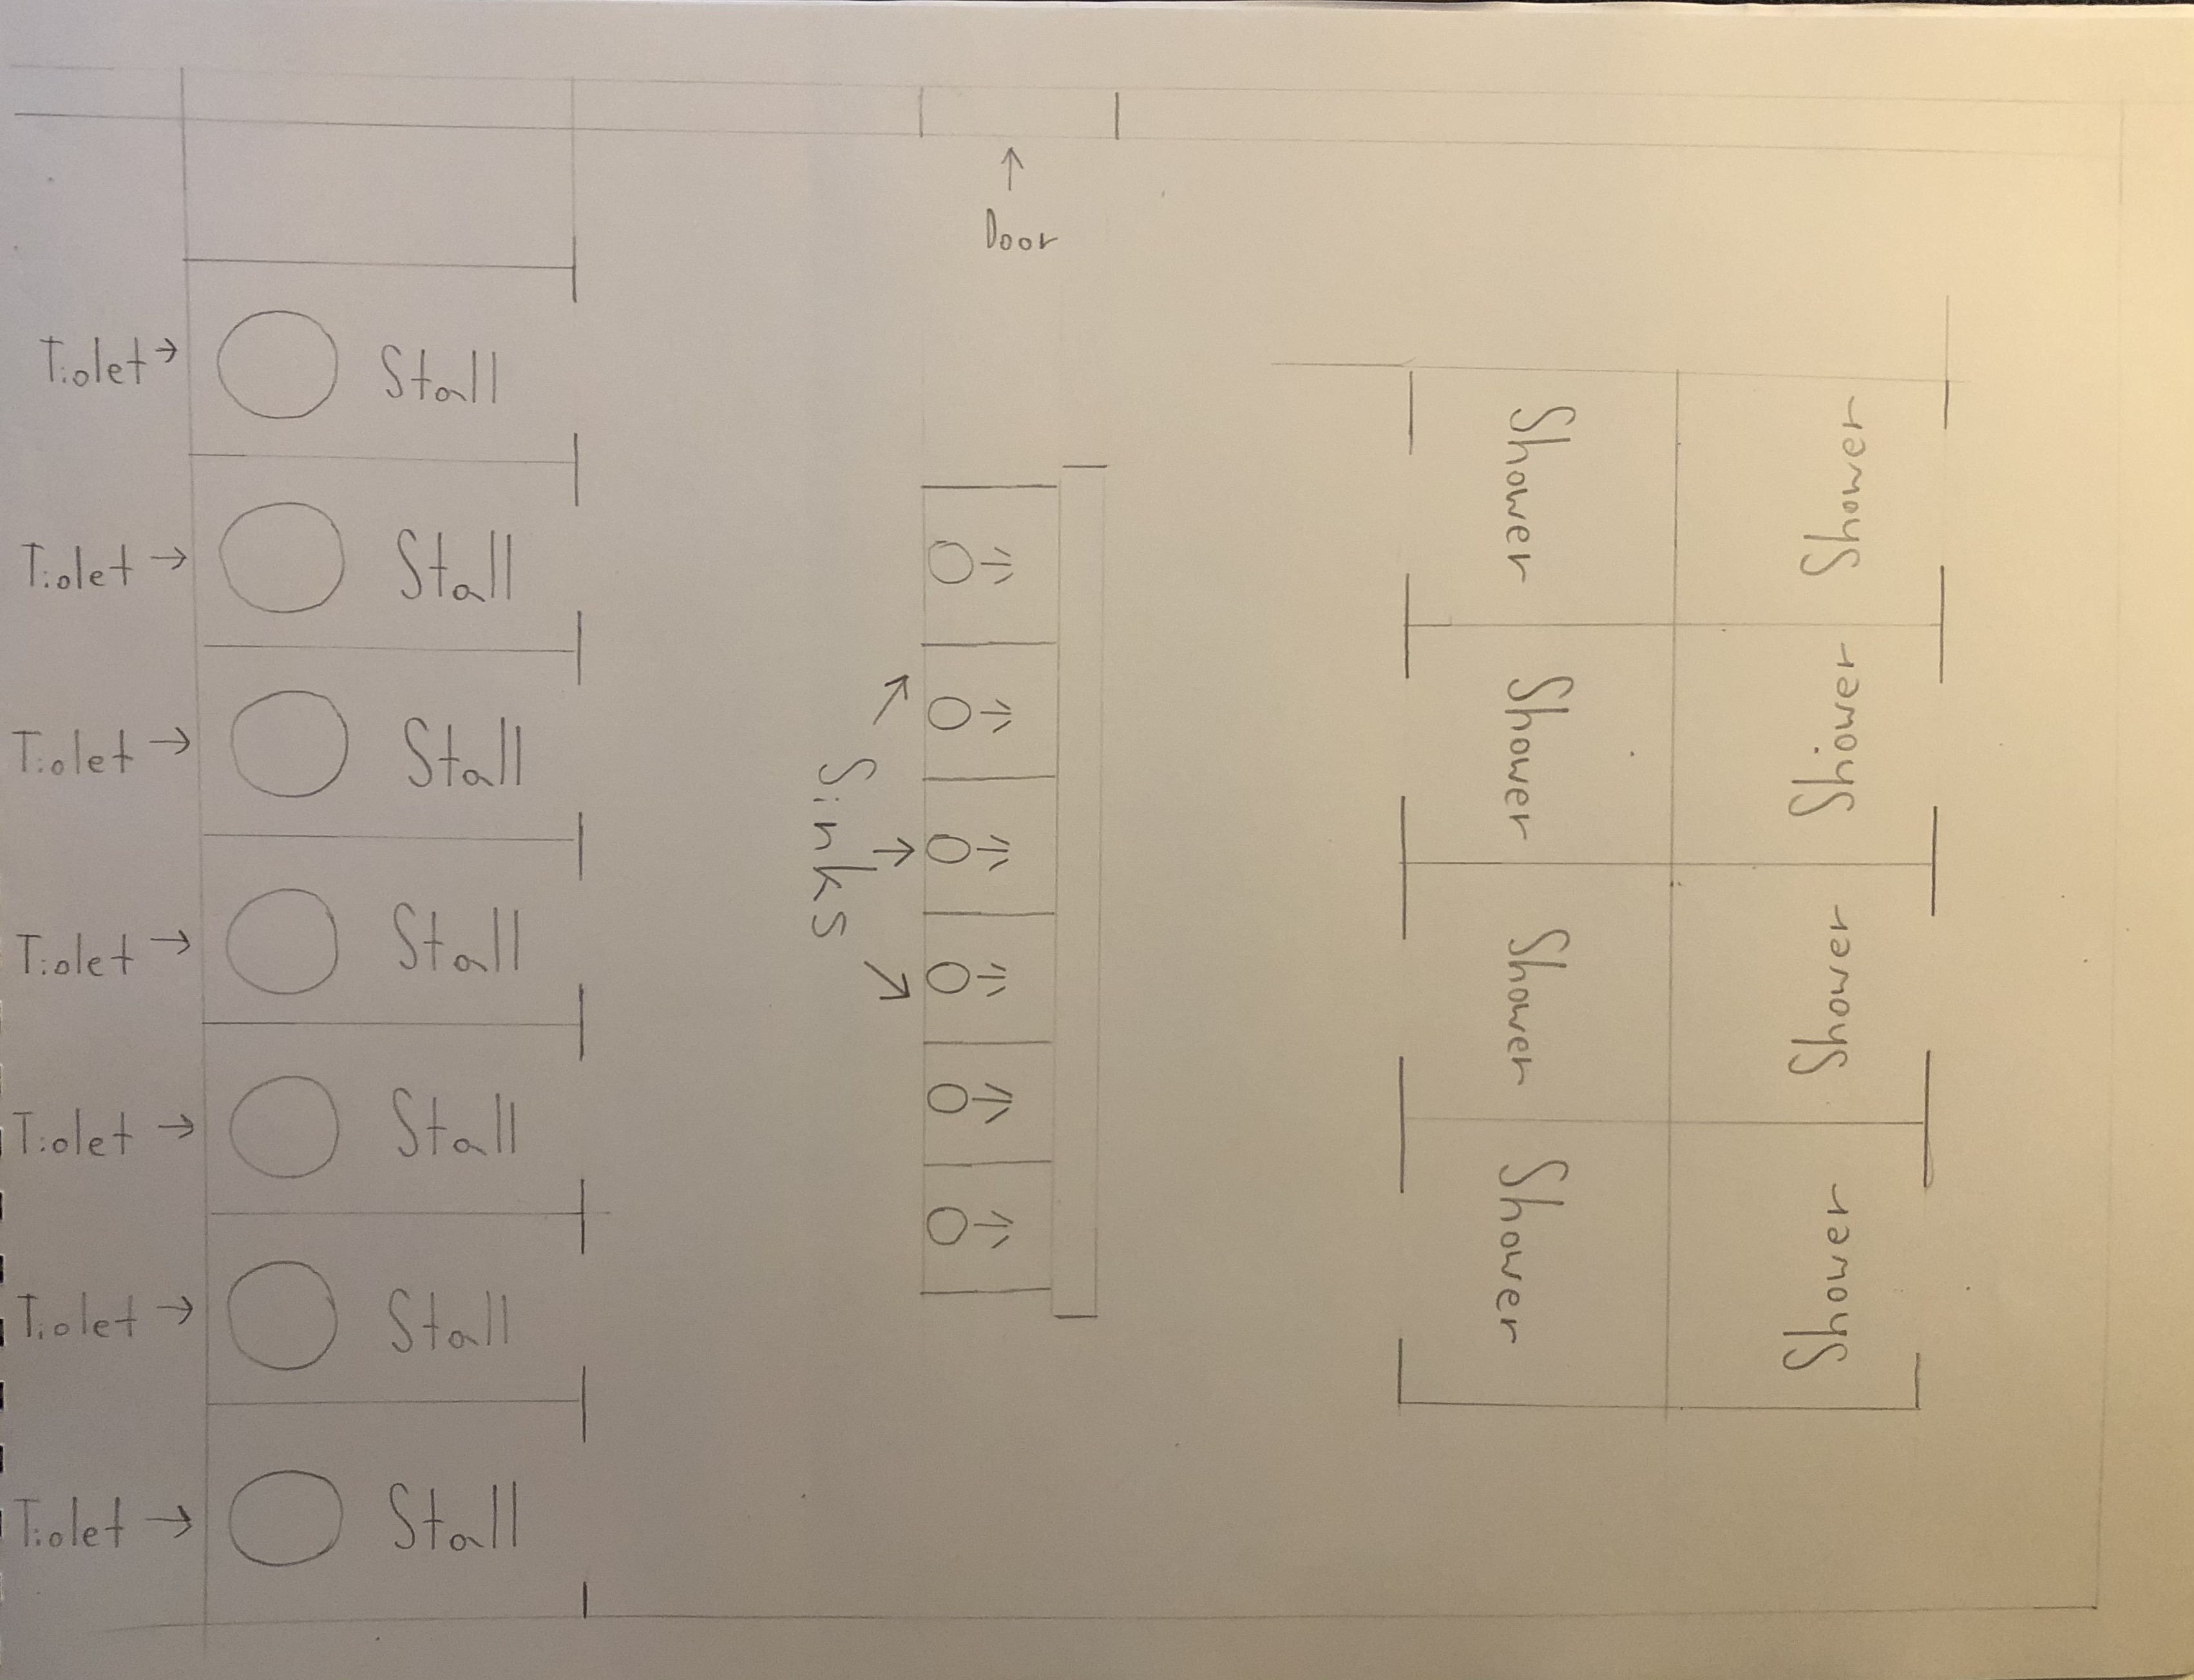 Door
Tiolet → Stall
Tiolet → Stall
Tiolet → Stall
Tiolet → Stall
Tiolet → Stall
Tiolet → Stall
Tiolet → Stall
Sinks
Shower
Shower
Shower
Shower
Shower
Shower
Shower
Shower